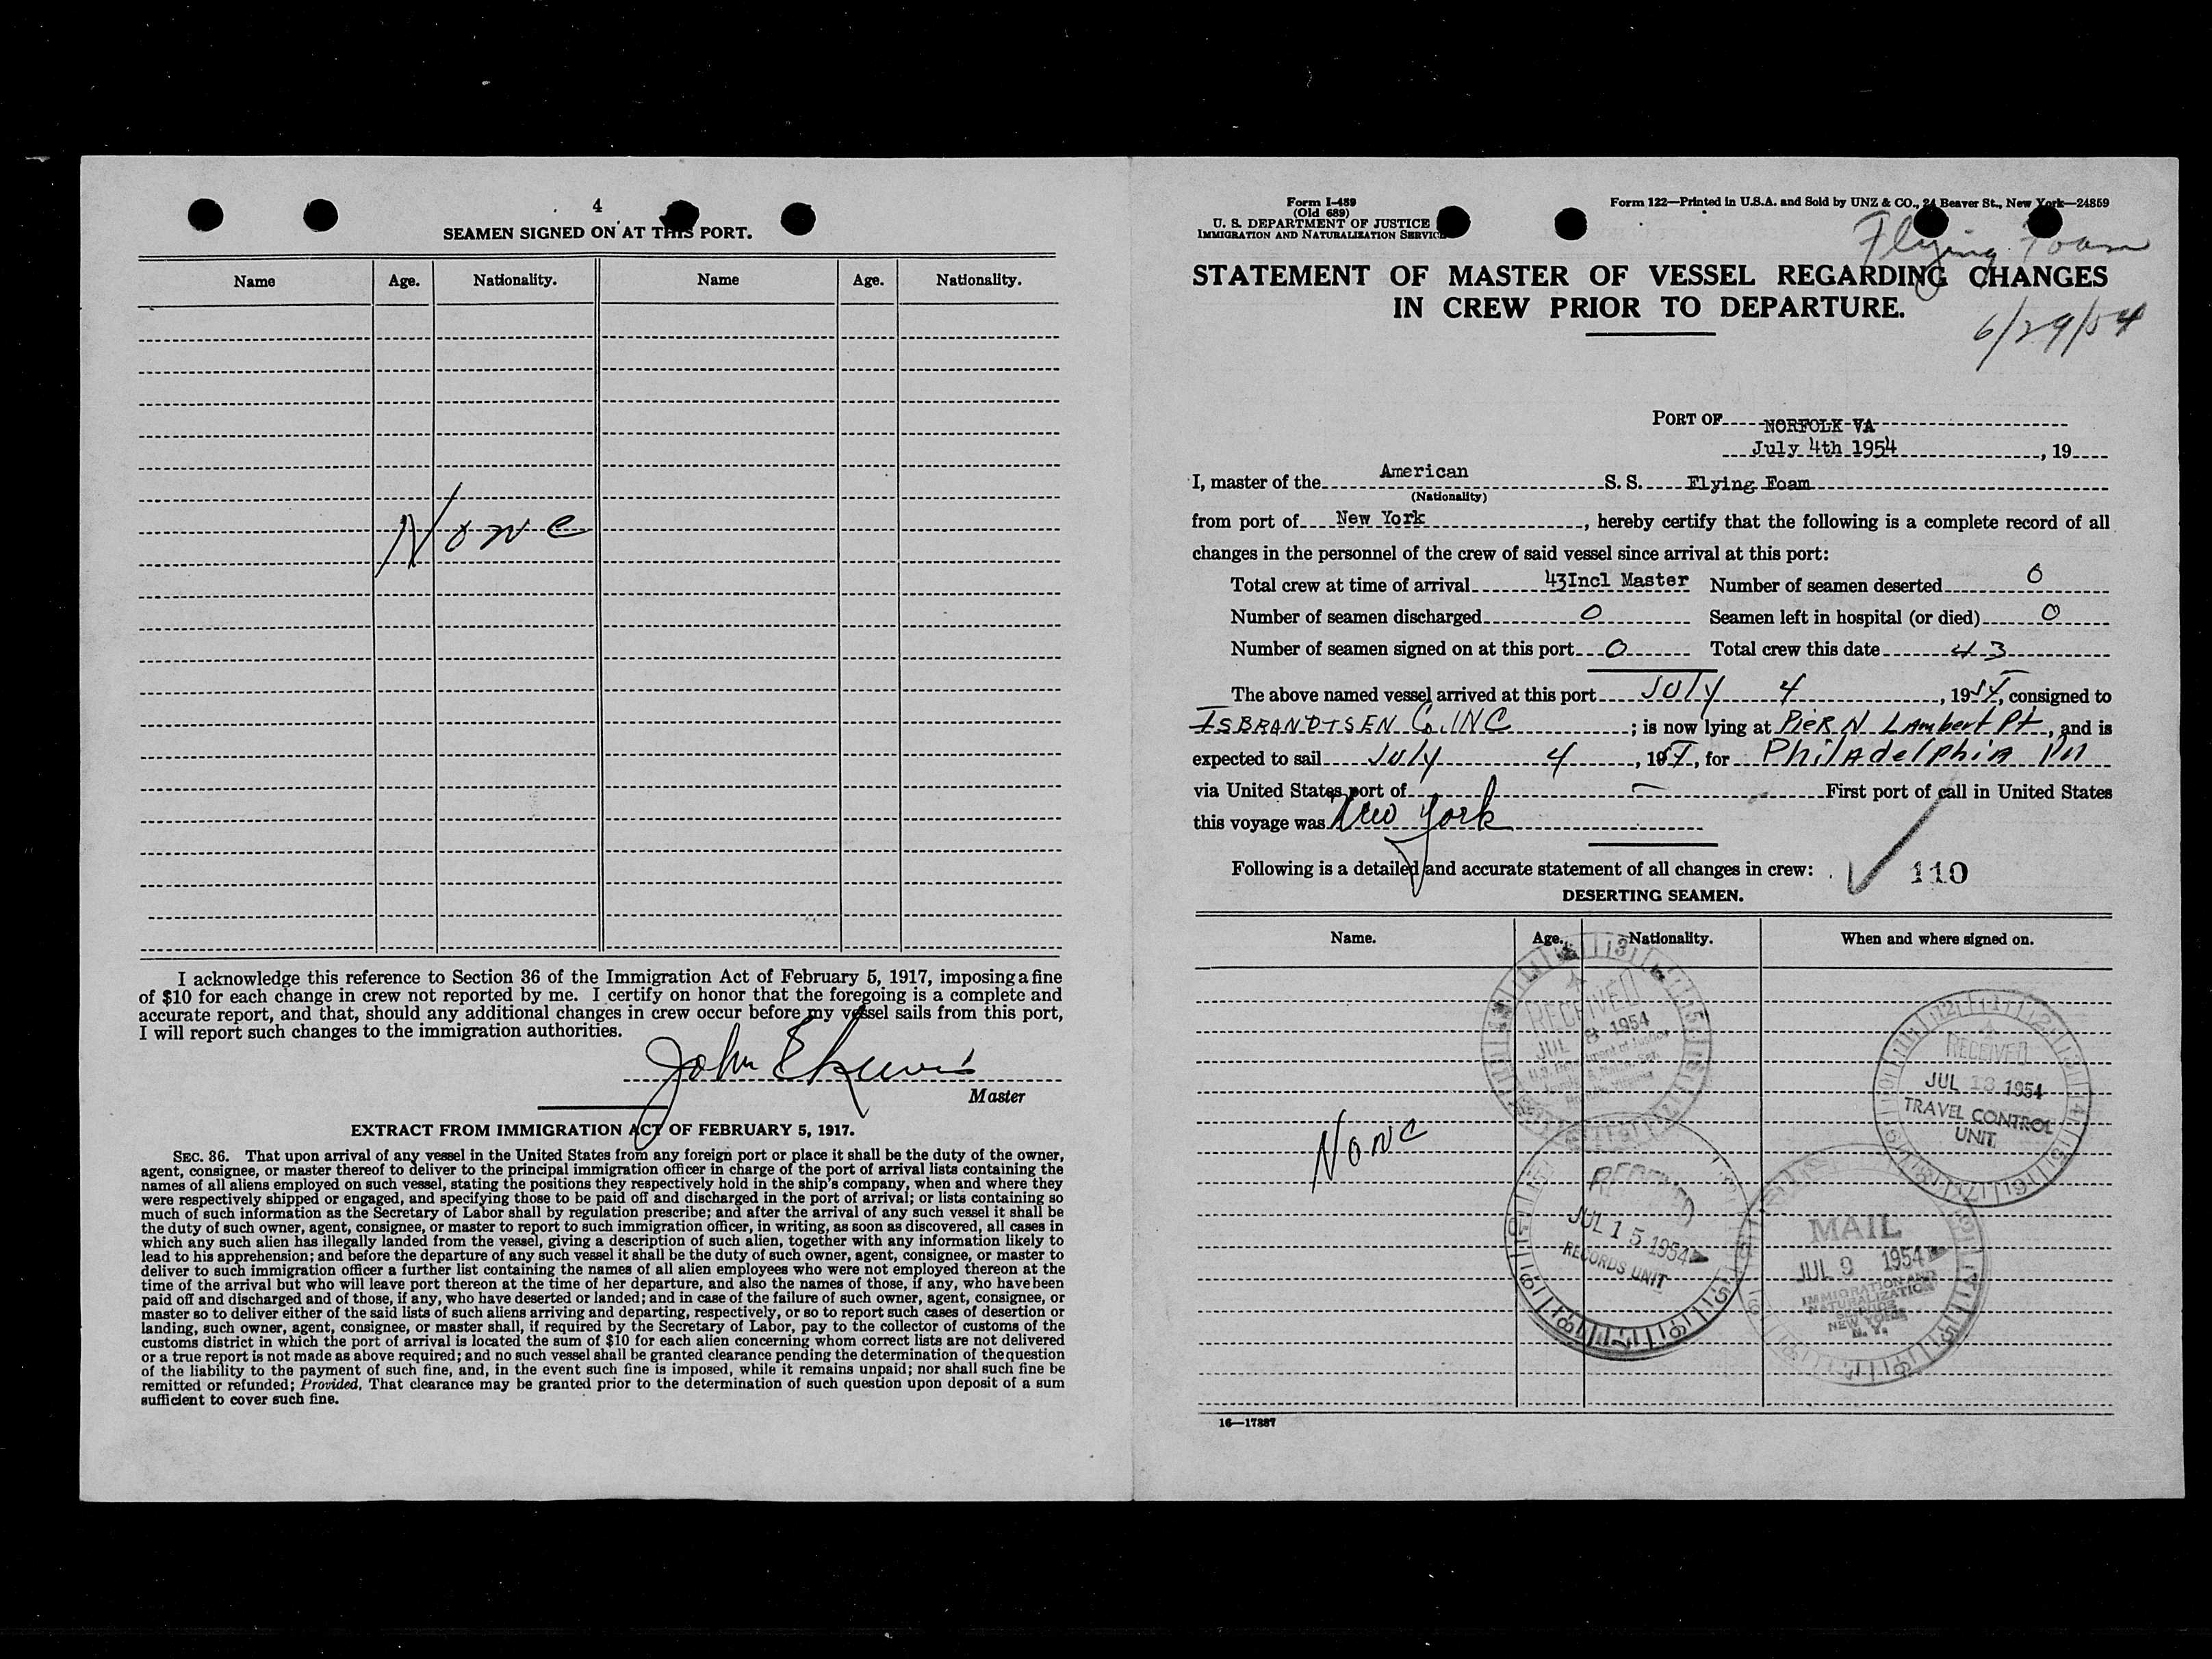 4
SEAMEN SIGNED ON AT THIS PORT.
Name Age. Nationality. Name Age. Nationality.
None
I acknowledge this reference to Section 36 of the Immigration Act of February 5, 1917, imposing a fine
of $10 for each change in crew not reported by me. I certify on honor that the foregoing is a complete and
accurate report, and that, should any additional changes in crew occur before my vessel sails from this port,
I will report such changes to the immigration authorities.
John
Master
EXTRACT FROM IMMIGRATION ACT OF FEBRUARY 5, 1917.
SEC. 36. That upon arrival of any vessel in the United States from any foreign port or place it shall be the duty of the owner,
agent, consignee, or master thereof to deliver to the principal immigration officer in charge of the port of arrival lists containing the
names of all aliens employed on such vessel, stating the positions they respectively hold in the ship's company, when and where they
were respectively shipped or engaged, and specifying those to be paid off and discharged in the port of arrival; or lists containing so
much of such information as the Secretary of Labor shall by regulation prescribe; and after the arrival of any such vessel it shall be
the duty of such owner, agent, consignee, or master to report to such immigration officer, in writing, as soon as discovered, all cases in
which any such alien has illegally landed from the vessel, giving a description of such alien, together with any information likely to
lead to his apprehension; and before the departure of any such vessel it shall be the duty of such owner, agent, consignee, or master to
deliver to such immigration officer a further list containing the names of all alien employees who were not employed thereon at the
time of the arrival but who will leave port thereon at the time of her departure, and also the names of those, if any, who have been
paid off and discharged and of those, if any, who have deserted or landed; and in case of the failure of such owner, agent, consignee, or
master so to deliver either of the said lists of such aliens arriving and departing, respectively, or so to report such cases of desertion or
landing, such owner, agent, consignee, or master shall, if required by the Secretary of Labor, pay to the collector of customs of the
customs district in which the port of arrival is located the sum of $10 for each alien concerning whom correct lists are not delivered
or a true report is not made as above required; and no such vessel shall be granted clearance pending the determination of the question
of the liability to the payment of such fine, and, in the event such fine is imposed, while it remains unpaid; nor shall such fine be
remitted or refunded; Provided, That clearance may be granted prior to the determination of such question upon deposit of a sum
sufficient to cover such fine.
Form I-489
(Old 689)
U. S. DEPARTMENT OF JUSTICE
IMMIGRATION AND NATURALIZATION SERVICE
Form 122—Printed in U.S.A. and Sold by UNZ & CO., 24 Beaver St., New York—24859
Flying Foam
STATEMENT OF MASTER OF VESSEL REGARDING CHANGES
IN CREW PRIOR TO DEPARTURE.
6/29/54
PORT OF NORFOLK VA
July 4th 1954, 19
I, master of the American S. S. Flying Foam
(Nationality)
from port of New York, hereby certify that the following is a complete record of all
changes in the personnel of the crew of said vessel since arrival at this port:
Total crew at time of arrival 43Incl Master Number of seamen deserted 0
Number of seamen discharged 0 Seamen left in hospital (or died) 0
Number of seamen signed on at this port 0 Total crew this date 43
The above named vessel arrived at this port July 4, 1954, consigned to
ISBRANDTSEN Co. INC; is now lying at PIER N LAmbert Pt, and is
expected to sail July 4, 1954, for PhilAdelphiA PA
via United States port of — First port of call in United States
this voyage was New York
Following is a detailed and accurate statement of all changes in crew: 110
DESERTING SEAMEN.
Name. Age. Nationality. When and where signed on.
None
RECEIVED
JUL 8 1954
RECEIVED
JUL 13 1954
TRAVEL CONTROL
UNIT
RECEIVED
JUL 15 1954
RECORDS UNIT
MAIL
JUL 9 1954
IMMIGRATION AND
NATURALIZATION
SERVICE
NEW YORK
N. Y.
16—17387